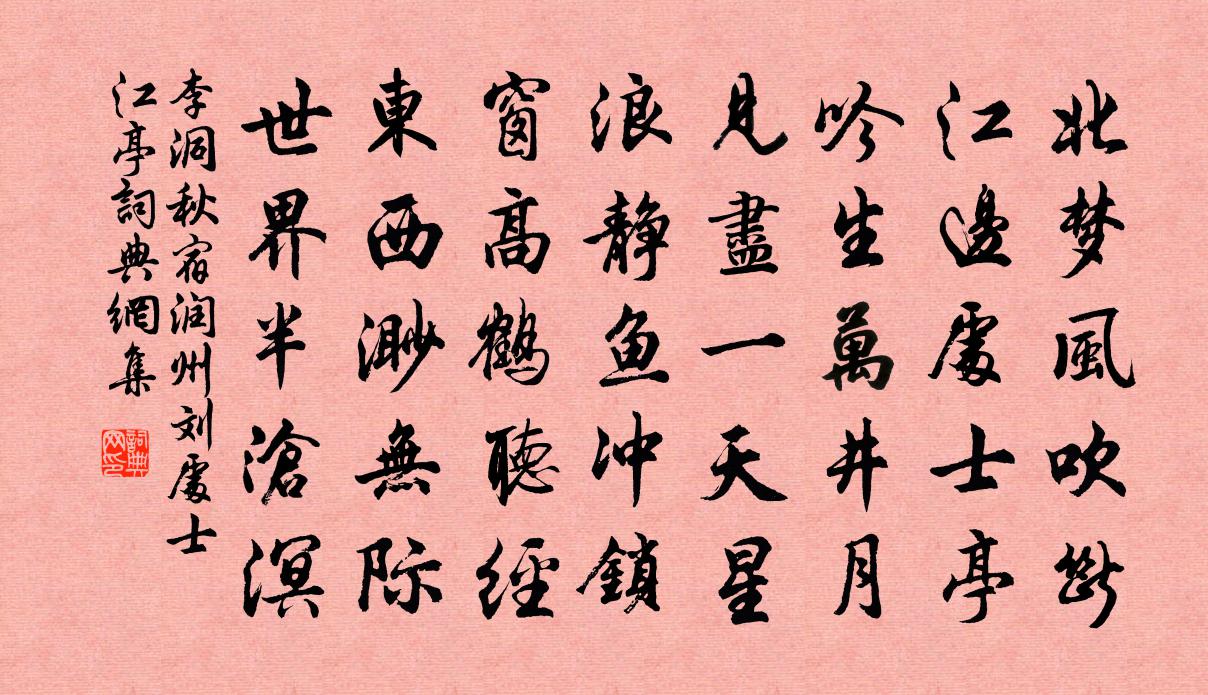 北梦風吹断
江邊處士亭
吟生萬井月
見盡一天星
浪静魚冲鎖
窗高鶴聽經
東西渺無际
世界半滄溟
李洞秋宿润州刘處士
江亭詞典網集
詞典
网印